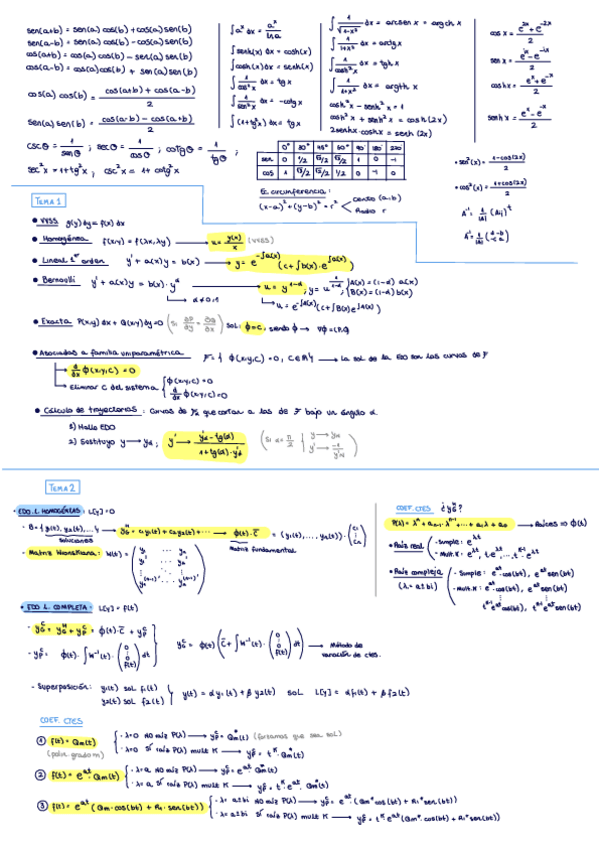 sen(a+b) = sen(a) cos(b) + cos(a) sen(b)
sen(a-b) = sen(a) cos(b) - cos(a) sen(b)
cos(a+b) = cos(a) cos(b) - sen(a) sen(b)
cos(a-b) = cos(a) cos(b) + sen(a) sen(b)
cos(a) cos(b) = cos(a+b) + cos(a-b) / 2
sen(a) sen(b) = cos(a-b) - cos(a+b) / 2
cscθ = 1/senθ ; secθ = 1/cosθ ; cotgθ = 1/tgθ ;
sec²x = 1+tg²x ; csc²x = 1+ cotg²x
∫aˣ dx = aˣ/ln a
∫senh(x) dx = cosh(x)
∫cosh(x) dx = senh(x)
∫ 1/cos²x dx = tgx
∫ 1/sen²x dx = -cotgx
∫(1+tg²x) dx = tgx
∫ 1/√1-x² dx = arcsen x
∫ 1/1+x² dx = arctgx
∫ 1/cosh²x dx = tghx
cosh²x - senh²x = 1
cosh²x + senh²x = cosh(2x)
2senhx·coshx = senh(2x)
coshx = eˣ + e⁻ˣ / 2
senhx = eˣ - e⁻ˣ / 2
0° 30° 45° 60° 90 180 270
sen 0 1/2 √2/2 √3/2 1 0 -1
cos 1 √3/2 √2/2 1/2 0 -1 0
Ec circunferencia:
(x-a)² + (y-b)² = r²
centro (a,b)
Radio r
• sen²(x) = 1-cos(2x) / 2
• cos²(x) = 1+cos(2x) / 2
TEMA 1
VVSS g(y) dy = f(x) dx
Homogénea f(x,y) = f(λx, λy) → u = y(x)/x (VVSS)
Lineal 1er orden y' + a(x) y = b(x) → y = e^-∫a(x) (c + ∫b(x)·e^∫a(x))
Bernoulli y' + a(x) y = b(x)·y^α → u = y^1-α ; A(x) = (1-α) a(x)
B(x) = (1-α) b(x)
α≠0,1
u = e^-∫A(x) (c + ∫B(x) e^∫A(x))
Exacta P(x,y) dx + Q(x,y) dy = 0 (Si ∂P/∂y = ∂Q/∂x) sol: φ=c, siendo φ → ∇φ = (P,Q)
Asociadas a familia uniparamétrica F = { φ(x,y,c) = 0, c∈ℝ } → la sol de la EDO son las curvas de F
d/dx φ(x,y,c) = 0
Eliminar C del sistema { φ(x,y,c) = 0
d/dx φ(x,y,c) = 0
Cálculo de trayectorias: curvas de que cortan a las de F bajo un ángulo α
1) Hallo EDO
2) Sustituyo y → yα ; y' → y'α - tg(α) / 1+tg(α)·y'α (Si α = π/2 { y → yα
y' → -1/y'α )
TEMA 2
EDO.L. HOMOGÉNEAS: L[y] = 0
B = {y₁(t), y₂(t), ...} → = c₁y₁(t) + c₂y₂(t) + ... → ϕ(t)·c̄ = (y₁(t), ..., yₙ(t))
soluciones
Matriz fundamental
Matriz Wronskiana: W(t) =
COEF. CTES ¿yGH?
P(λ) = λⁿ + aₙ₋₁ λⁿ⁻¹ + ... + a₁λ + a₀ → Raíces ⇒ ϕ(t)
Raíz real
- Simple: e^λt
- Mult. K: e^λt, t·e^λt, ..., t^K-1·e^λt
Raíz compleja
(λ = a±bi)
- Simple: e^at·cos(bt), e^at sen(bt)
- Mult. K: e^at·cos(bt), e^at sen(bt)
t^K-1 e^at cos(bt), t^K-1 e^at sen(bt)
EDO L. COMPLETA: L[y] = f(t)
- yGC = yGH + yPC = ϕ(t)·c̄ + yPC
- yPC = ϕ(t)·∫W⁻¹(t)·(0 ⋮ 0 f(t)) dt
yGC = ϕ(t)(c̄ + ∫W⁻¹(t)·(0 ⋮ 0 f(t)) dt) → Método de
variación de ctes.
- Superposición: y₁(t) sol f₁(t)
y₂(t) sol f₂(t)
y(t) = αy₁(t) + βy₂(t) sol L[y] = αf₁(t) + βf₂(t)
COEF. CTES
1 f(t) = Qm(t)
(polin. grado m)
· λ=0 NO raíz P(λ) → yPC = Qm*(t) (forzamos que sea sol)
· λ=0 SÍ raíz P(λ) mult K → yPC = t^K·Qm*(t)
2 f(t) = e^at·Qm(t)
· λ=a NO raíz P(λ) → yPC = e^at·Qm*(t)
· λ=a SÍ raíz P(λ) mult K → yPC = t^K·e^at·Qm*(t)
3 f(t) = e^at (Qm·cos(bt) + Rn·sen(bt))
· λ=a±bi NO raíz P(λ) → yPC = e^at·(Qm*cos(bt) + Rn*sen(bt))
· λ=a±bi SÍ raíz P(λ) mult K → yPC = t^K e^at (Qm*·cos(bt) + Rn*sen(bt))